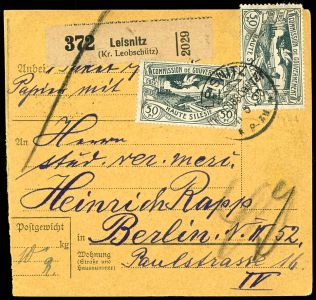 372 Leisnitz
(Kr. Leobschütz)
2029
COMMISSION DE GOUVERNEMENT
HAUTE SILESIE
50 50
COMMISSION DE GOUVERNEMENT
50
Papier mit
An
Herrn
stud. rer. merc.
Heinrich Rapp
Berlin N.W. 52.
Wohnung
(Straße und
Hausnummer)
Paulstrasse 16
IV
Postgewicht
kg